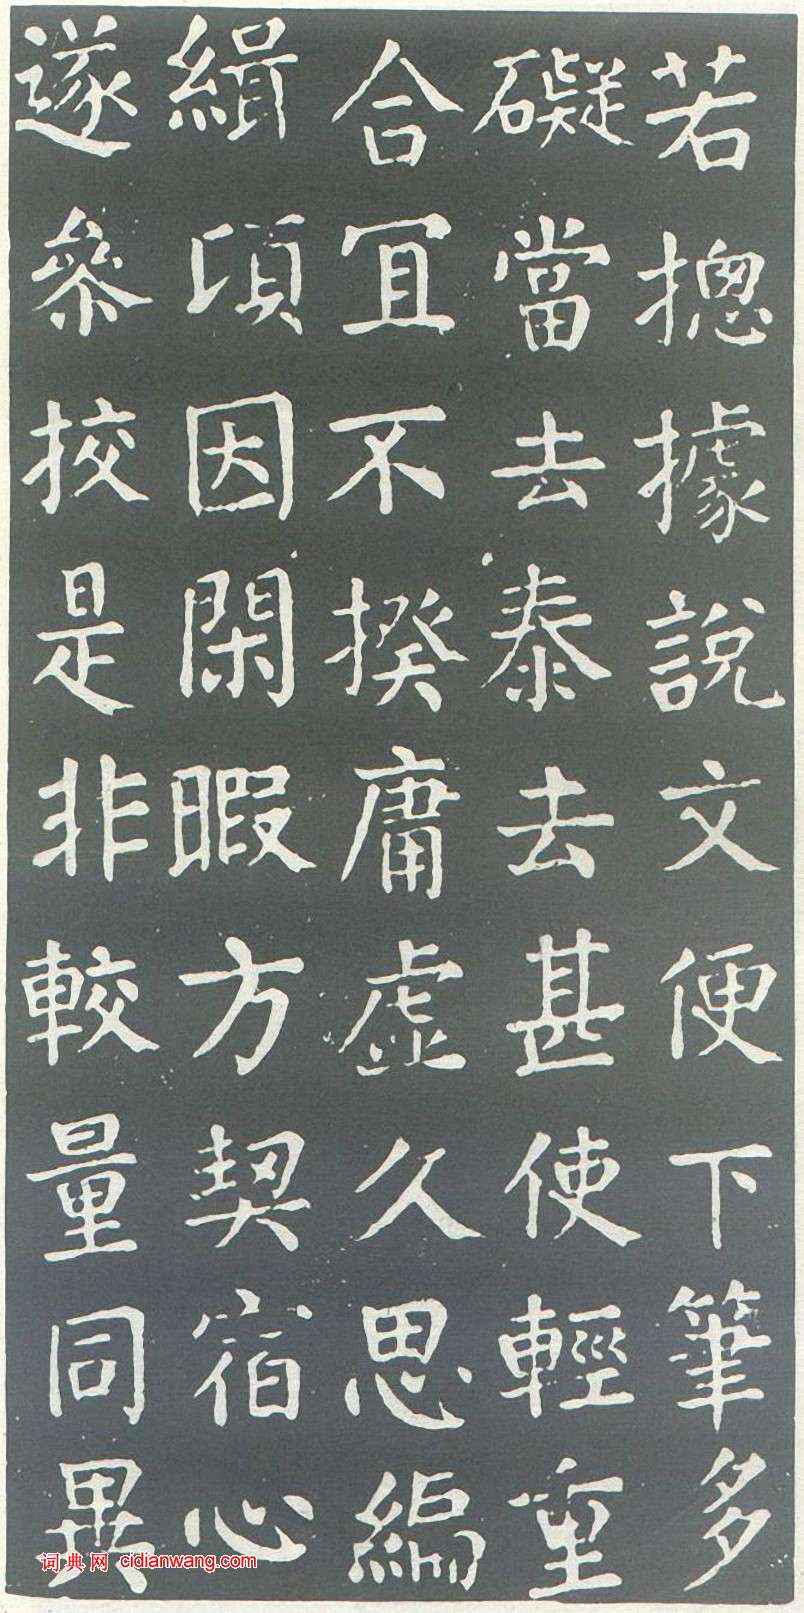 若揔據說文便下筆多
礙當去泰去甚使輕重
合冝不揆庸虛久思編
緝頃因閑暇方契宿心
遂叅挍是非較量同異
词典网 cidianwang.com